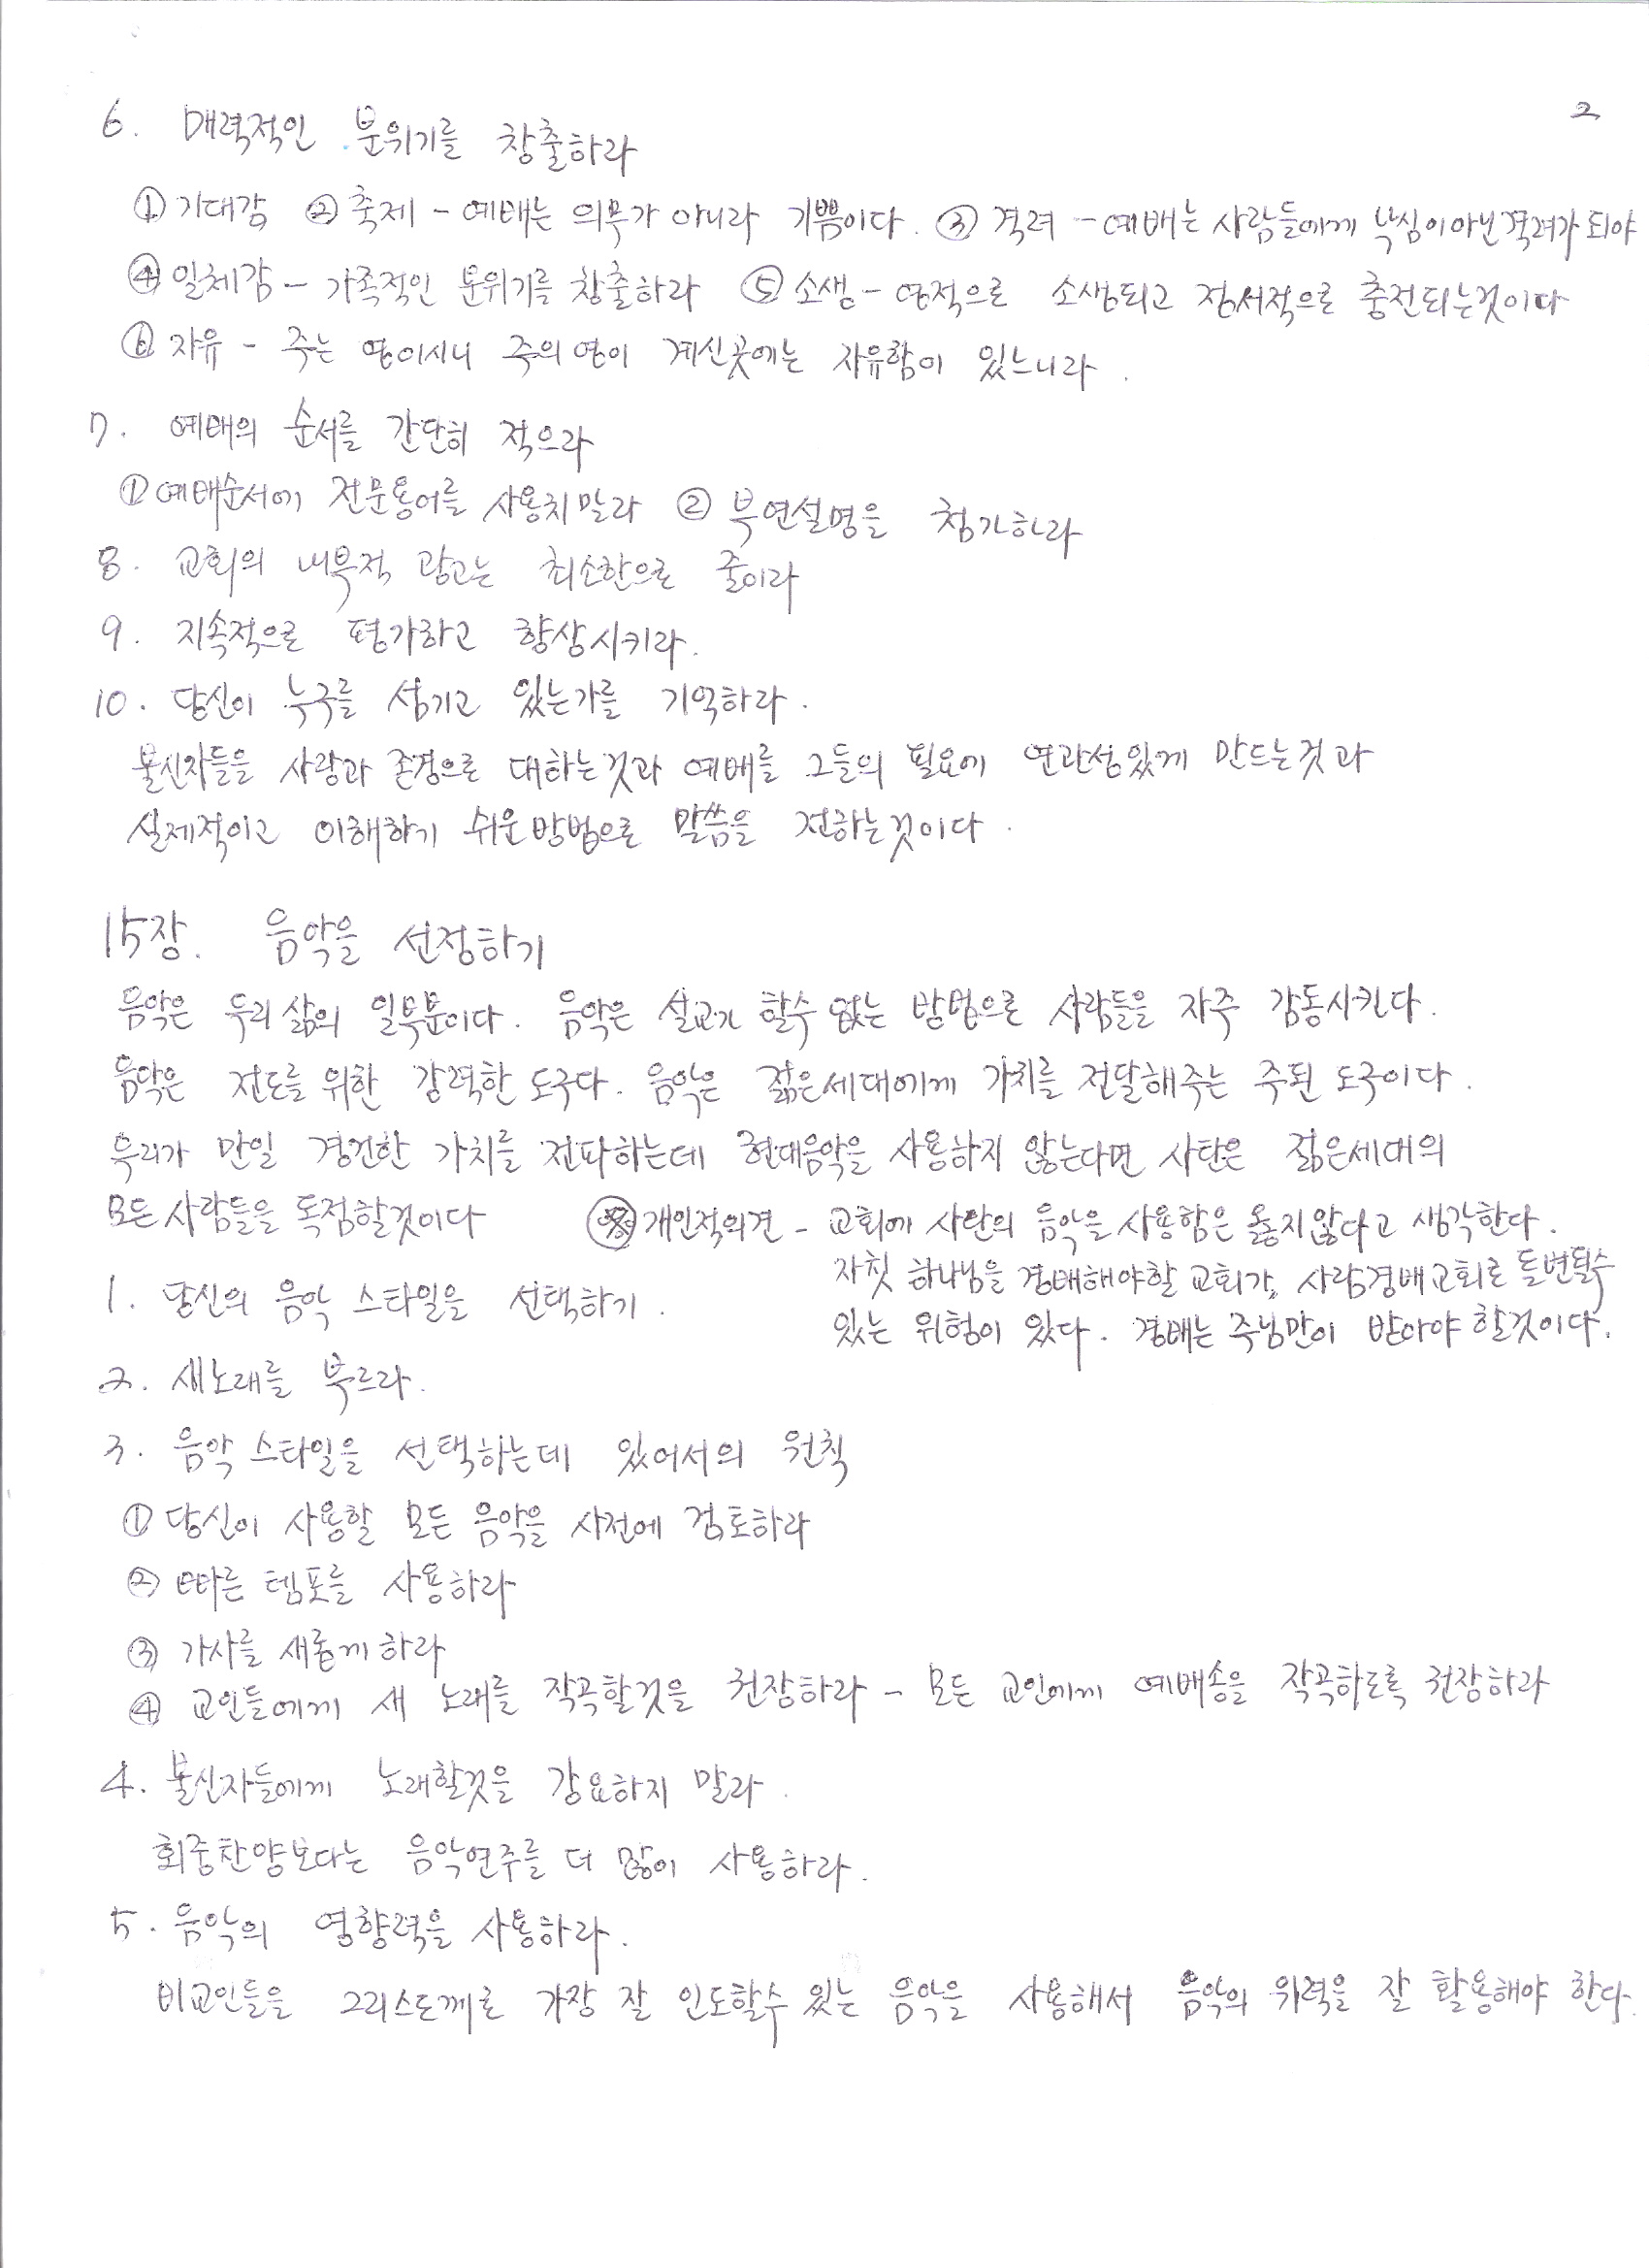 2
6. 매력적인 분위기를 창출하라
① 기대감 ② 축제 - 예배는 의무가 아니라 기쁨이다. ③ 격려 - 예배는 사람들에게 낙심이아닌격려가 되야
④ 일체감 - 가족적인 분위기를 창출하라 ⑤ 소생 - 영적으로 소생되고 정서적으로 충전되는것이다
⑥ 자유 - 주는 영이시니 주의영이 계신곳에는 자유함이 있느니라.
7. 예배의 순서를 간단히 적으라
① 예배순서에 전문용어를 사용치말라 ② 부연설명을 첨가하라
8. 교회의 내부적 광고는 최소한으로 줄이라
9. 지속적으로 평가하고 향상시키라.
10. 당신이 누구를 섬기고 있는가를 기억하라.
불신자들을 사랑과 존경으로 대하는것과 예배를 그들의 필요에 연관성있게 만드는것과
실제적이고 이해하기 쉬운방법으로 말씀을 전하는것이다.
15장. 음악을 선정하기
음악은 우리삶의 일부분이다. 음악은 설교가 할수 없는 방법으로 사람들을 자주 감동시킨다.
음악은 전도를 위한 강력한 도구다. 음악은 젊은세대에게 가치를 전달해주는 주된 도구이다.
우리가 만일 경건한 가치를 전파하는데 현대음악을 사용하지 않는다면 사탄은 젊은세대의
모든사람들을 독점할것이다 개인적의견 - 교회에 사탄의 음악을 사용함은 옳지않다고 생각한다.
자칫 하나님을 경배해야할 교회가, 사람경배교회로 돌변될수
있는 위험이 있다. 경배는 주님만이 받아야 할것이다.
1. 당신의 음악 스타일을 선택하기.
2. 새노래를 부르라.
3. 음악 스타일을 선택하는데 있어서의 원칙
① 당신이 사용할 모든 음악을 사전에 검토하라
② 빠른 템포를 사용하라
③ 가사를 새롭게하라
④ 교인들에게 새 노래를 작곡할것을 권장하라 - 모든 교인에게 예배송을 작곡하도록 권장하라
4. 불신자들에게 노래할것을 강요하지 말라.
회중찬양보다는 음악연주를 더 많이 사용하라.
5. 음악의 영향력을 사용하라.
비교인들을 그리스도께로 가장 잘 인도할수 있는 음악을 사용해서 음악의 위력을 잘 활용해야 한다.